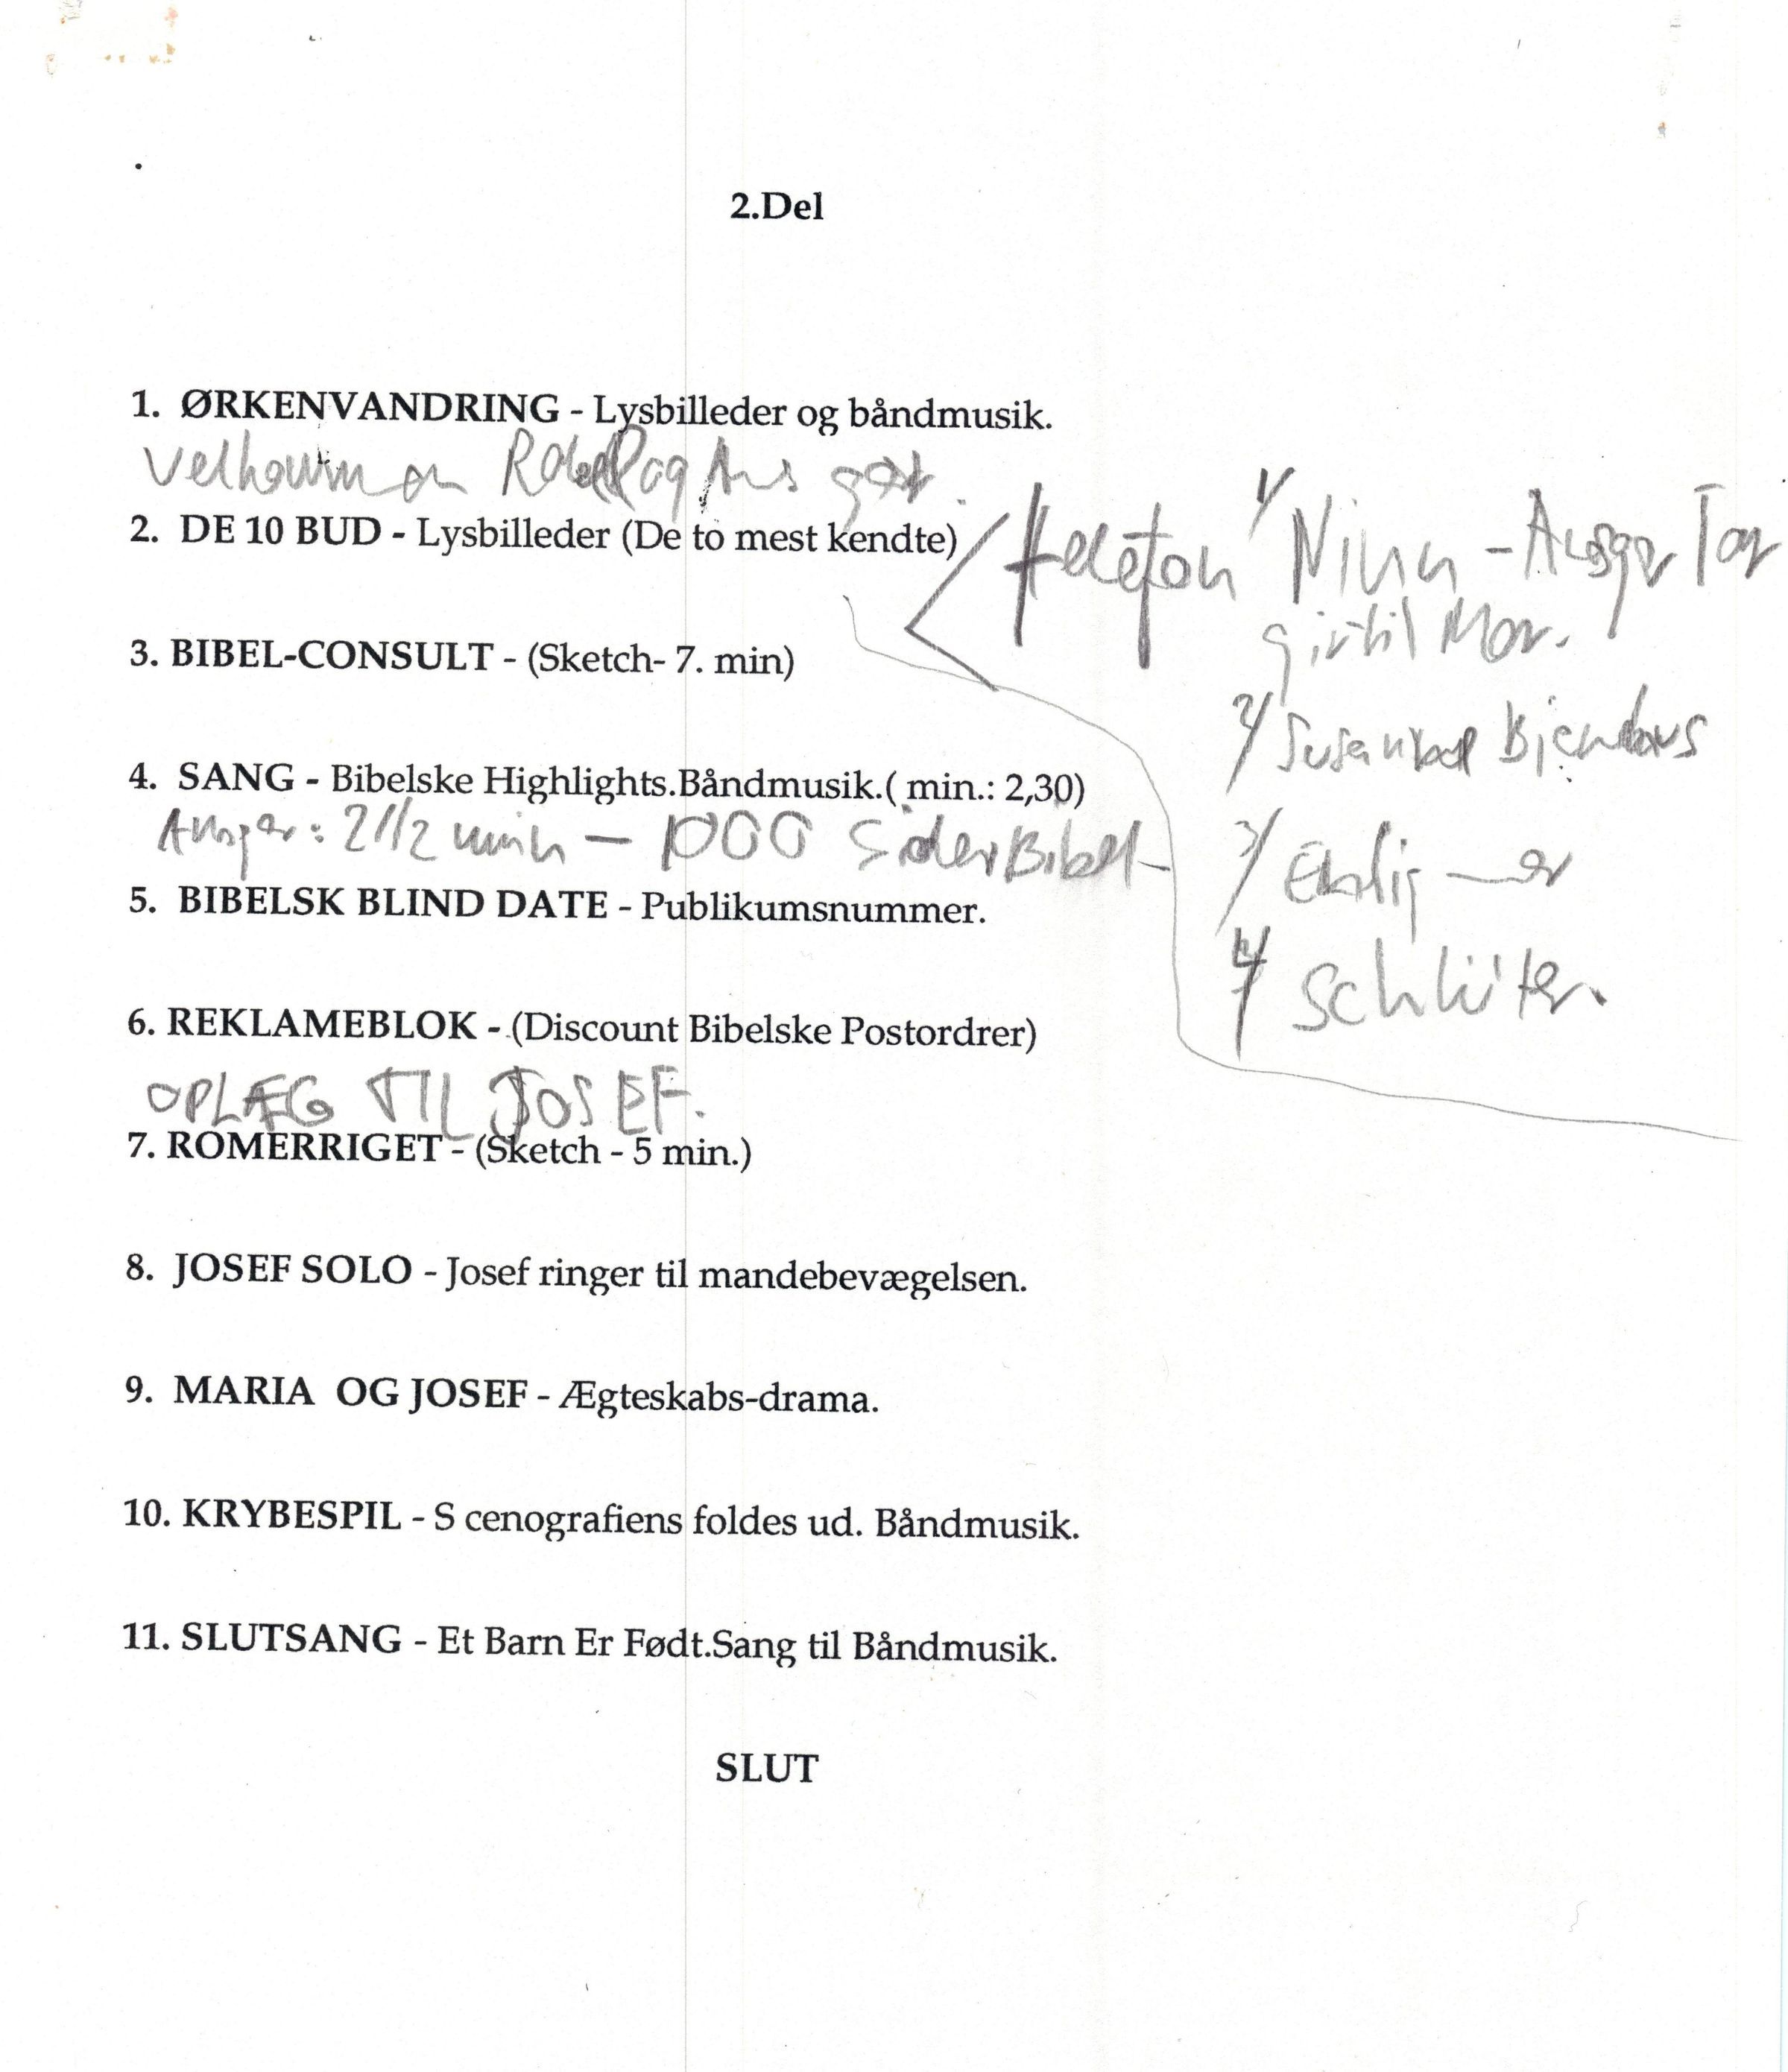 2.Del
1. ØRKENVANDRING - Lysbilleder og båndmusik.
Velkommen
2. DE 10 BUD - Lysbilleder (De to mest kendte)
telefon 1/ Ninn -
til Mor.
3. BIBEL-CONSULT - (Sketch- 7. min)
2/
4. SANG - Bibelske Highlights.Båndmusik.( min.: 2,30)
Ansgar: 2 1/2 min - 1000 sider Bibel -
3/
5. BIBELSK BLIND DATE - Publikumsnummer.
4/ Schlüter.
6. REKLAMEBLOK - (Discount Bibelske Postordrer)
OPLÆG TIL JOSEF.
7. ROMERRIGET - (Sketch - 5 min.)
8. JOSEF SOLO - Josef ringer til mandebevægelsen.
9. MARIA OG JOSEF - Ægteskabs-drama.
10. KRYBESPIL - S cenografiens foldes ud. Båndmusik.
11. SLUTSANG - Et Barn Er Født.Sang til Båndmusik.
SLUT